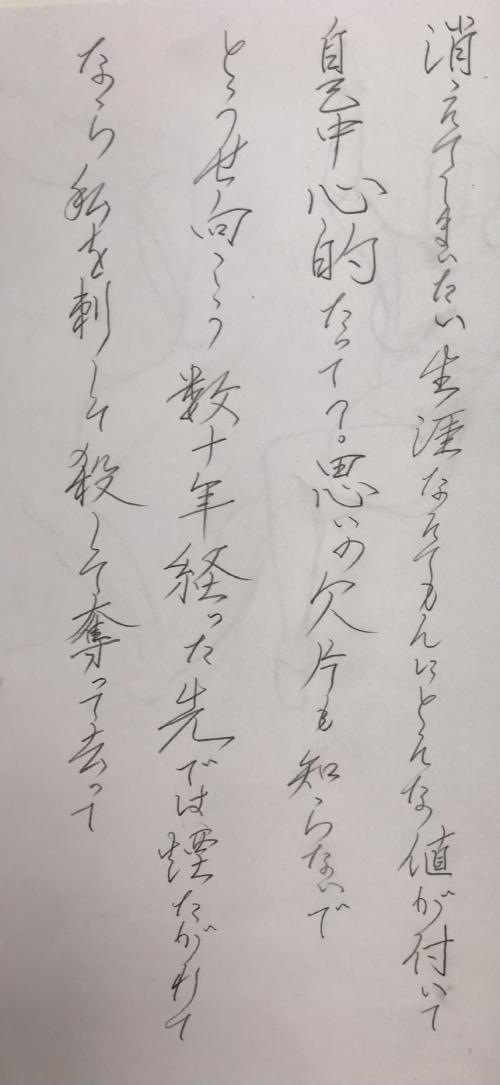 消えてしまいたい生涯なんてもんにどんな値が付いて
自己中心的だって？。思いの欠片も知らないで
どうせ向こう数十年経った先では煙たがれて
なら私を刺して殺して奪って去って